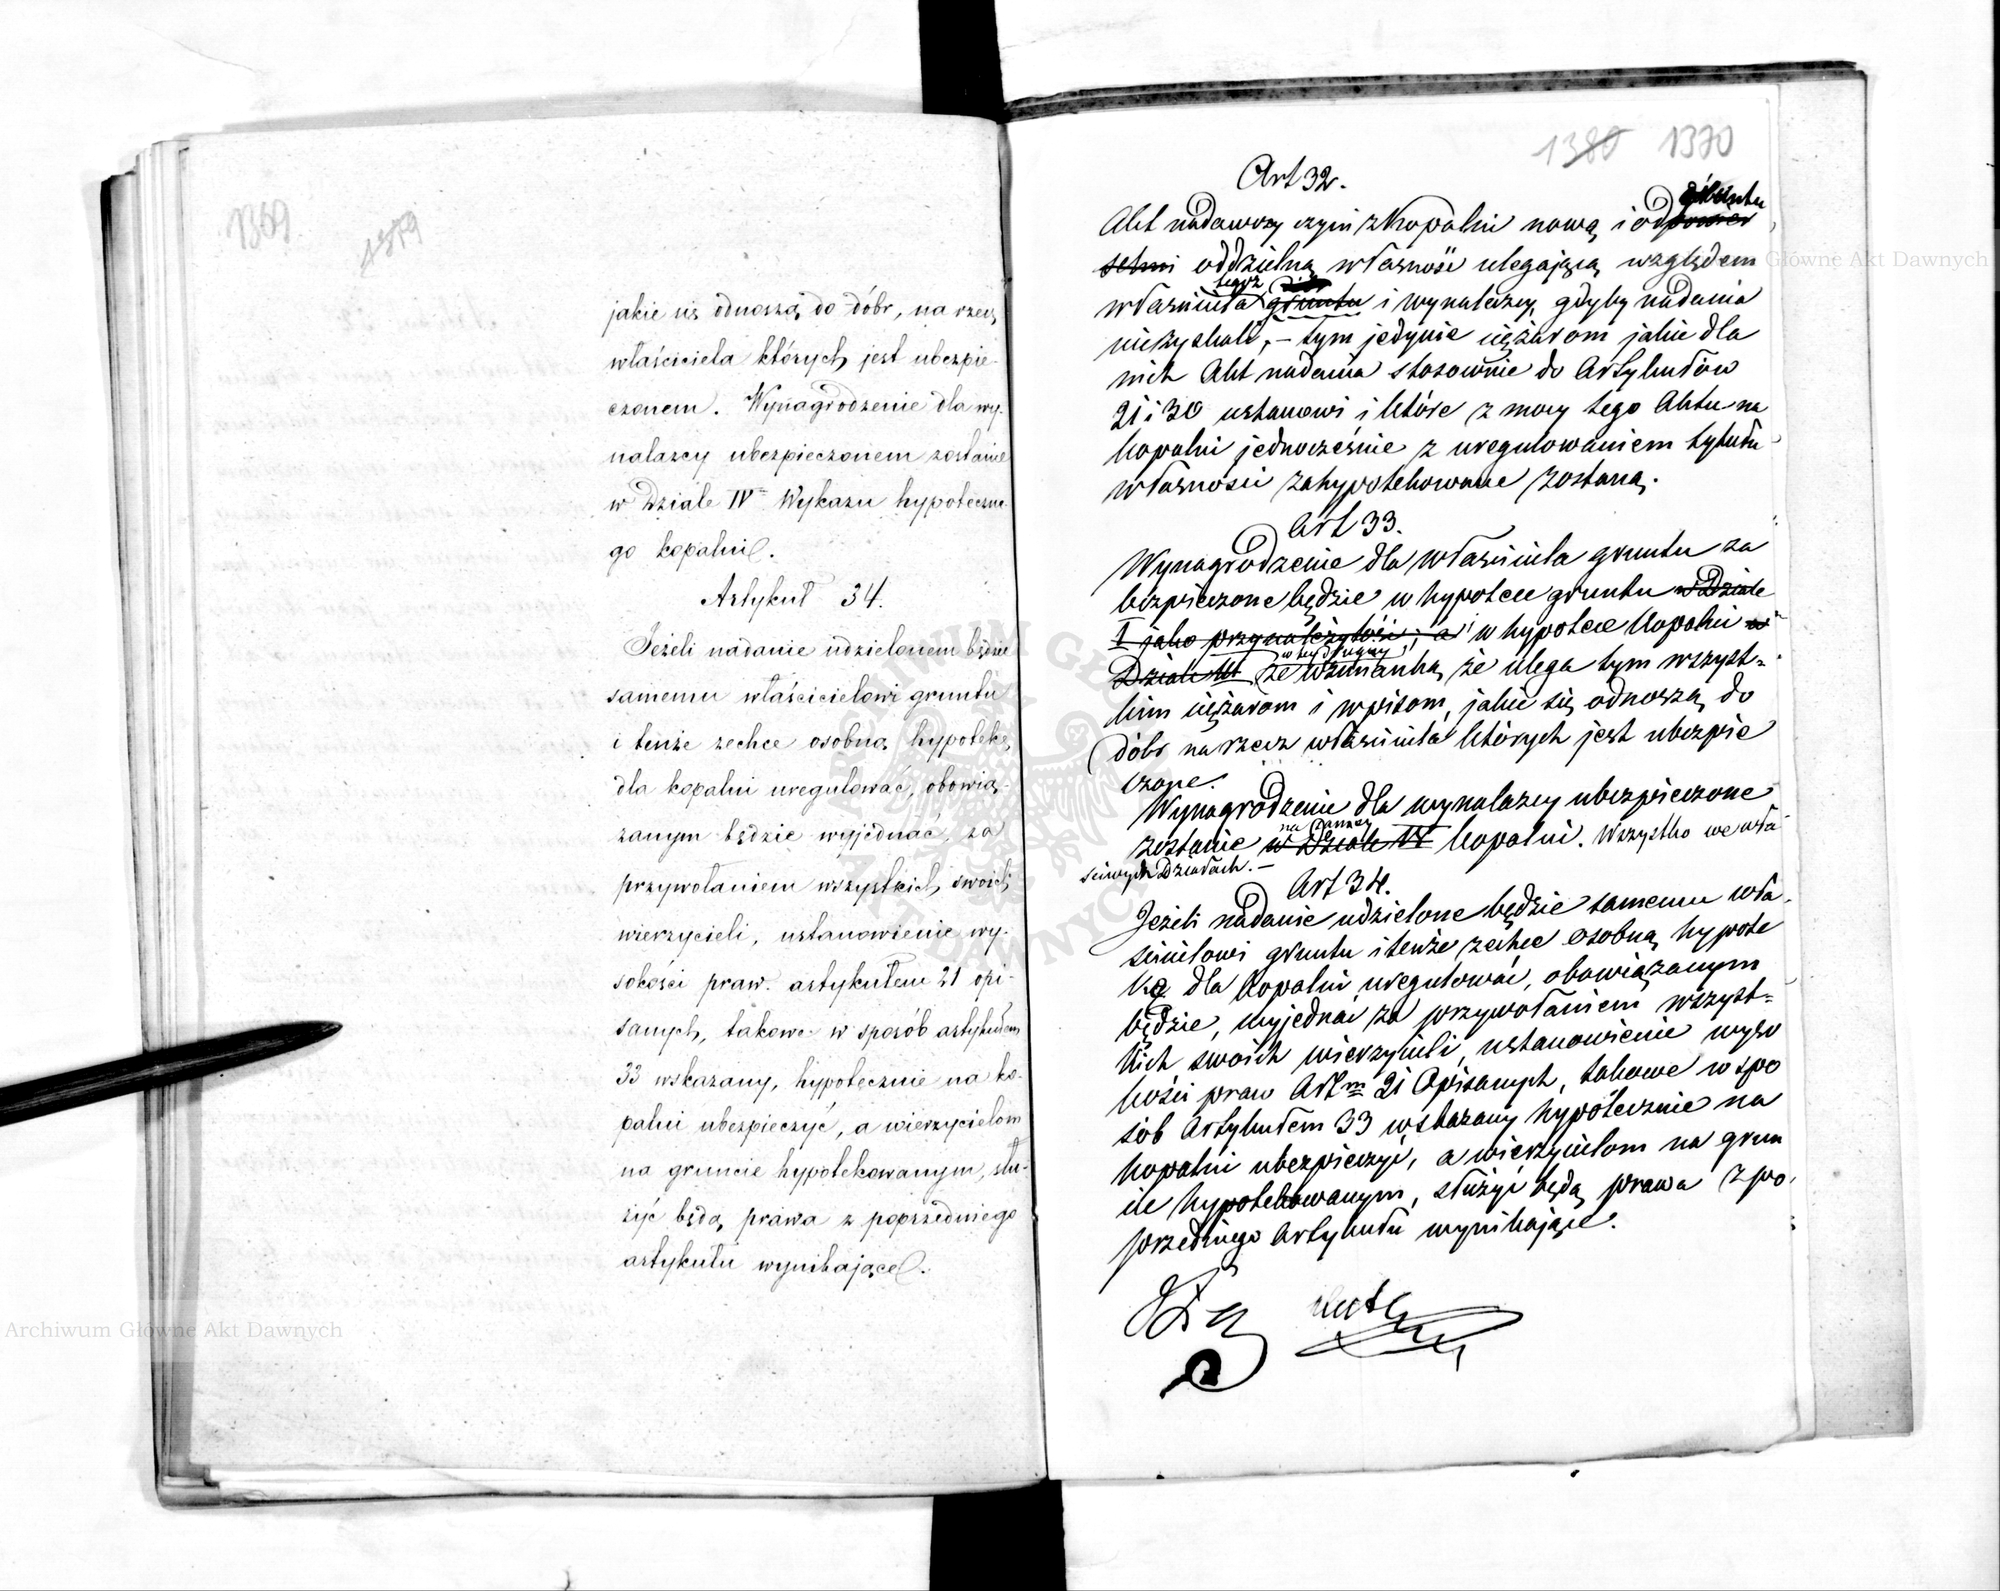 1369
1379
jakie się odnoszą do dóbr, na rzecz
właściciela których jest ubezpie-
czonem. Wynagrodzenie dla wy-
nalazcy ubezpieczonem zostanie
w Dziale IV Wykazu hypoteczne-
go kopalni.
Artykuł 34.
Jeżeli nadanie udzielonem będzie
samemu właścicielowi gruntu
i tenże zechce osobną hypotekę
dla kopalni uregulować, obowią-
zanym będzie wyjednać, za
przywołaniem wszystkich swoich
wierzycieli, ustanowienie wy-
sokości praw. artykułem 21 opi-
sanych, takowe w sposób artykułem
33 wskazany, hypotecznie na ko-
palni ubezpieczyć, a wierzycielom
na gruncie hypotekowanym, słu-
żyć będą prawa z poprzedniego
artykułu wynikające.
1380 1370
Art 32.
gruntu
Akt nadawczy czyni z Kopalni nową i od powierz
schni oddzielną własność ulegającą względem
tegoż
właściciela gruntu i wynalazcy, gdyby nadania
nieżyskali, – tym jedynie ciężarom jakie dla
nich Akt nadania stosownie do Artykułów
21 i 30 ustanowi i które z mocy tego Aktu na
kopalni jednocześnie z uregulowaniem tytułu
własności zahypotekowane zostaną.
Art 33.
Wynagrodzenie dla właściciela gruntu za
bezpieczone będzie w hypotece gruntu w Dziale
I jako przynależytość, a w hypotece Kopalni w
Dziale III ze wzmianką, że ulega tym wszyst=
kim ciężarom i wpisom, jakie się odnoszą do
dóbr na rzecz właściciela których jest ubezpie
czone.
Wynagrodzenie dla wynalazcy ubezpieczone
na
zostanie w Dziale IV kopalni. Wszystko we wła
ściwych Działach. –
Art 34.
Jeżeli nadanie udzielone będzie samemu wła
ścicielowi gruntu i tenże zechce osobną hypote
kę dla kopalni uregulować, obowiązanym
będzie, wyjednać za przywołaniem wszyst=
kich swoich wierzycieli, ustanowienie wyso
kości praw Artm 21 Opisanych, takowe w spo
sób Artykułem 33 wskazany hypotecznie na
kopalni ubezpieczyć, a wierzycielom na grun
cie hypotekowanym, służyć będą prawa z po
przedniego Artykułu wynikające.
ARCHIWUM GŁÓWNE AKT DAWNYCH
Główne Akt Dawnych
Archiwum Główne Akt Dawnych